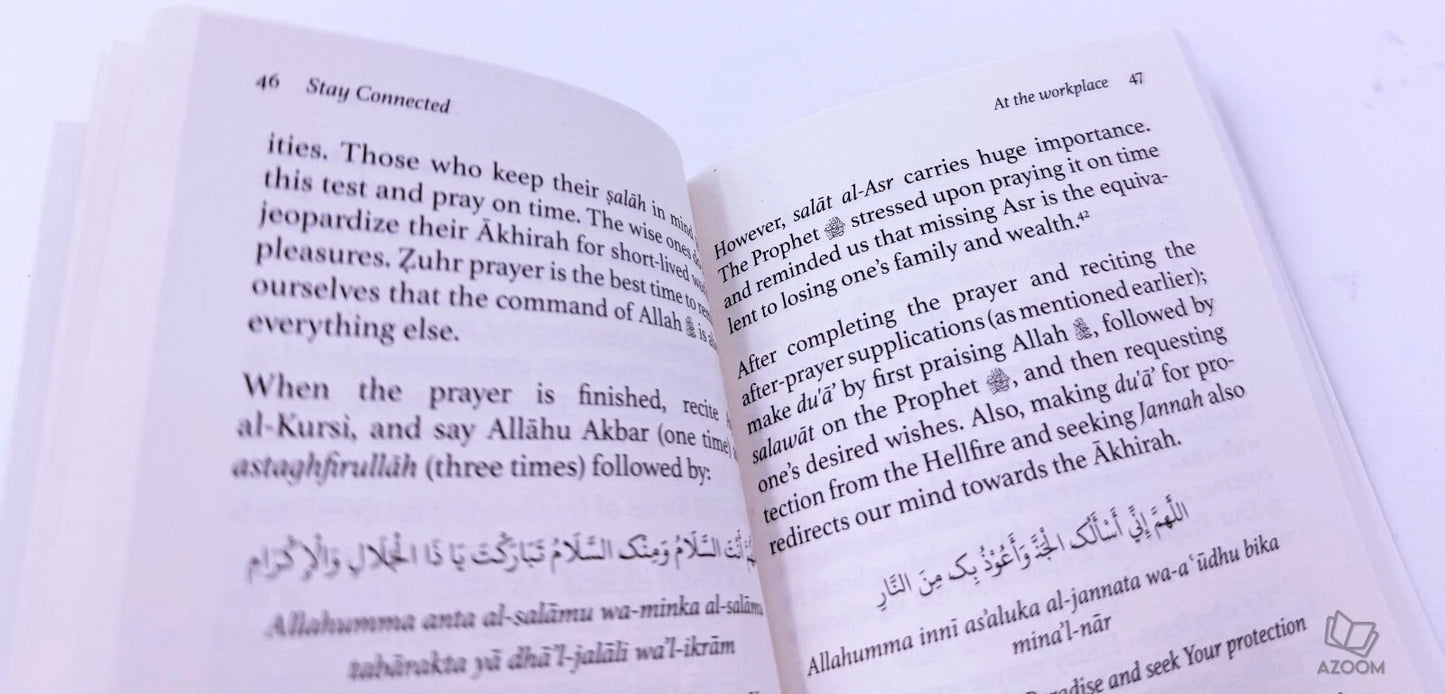 46 Stay Connected
ities. Those who keep their ṣalāh in mind
this test and pray on time. The wise ones
jeopardize their Ākhirah for short-lived
pleasures. Ẓuhr prayer is the best time to
ourselves that the command of Allah ﷻ is
everything else.
When the prayer is finished, recite
al-Kursi, and say Allāhu Akbar (one time)
astaghfirullāh (three times) followed by:
أَنْتَ السَّلَامُ وَمِنْكَ السَّلَامُ تَبَارَكْتَ يَا ذَا الْجَلَالِ وَالْإِكْرَامِ
Allahumma anta al-salāmu wa-minka al-salāmu
tabārakta yā dhā’l-jalāli wa’l-ikrām
At the workplace 47
However, salāt al-Asr carries huge importance.
The Prophet ﷺ stressed upon praying it on time
and reminded us that missing Asr is the equiva-
lent to losing one’s family and wealth.⁴²
After completing the prayer and reciting the
after-prayer supplications (as mentioned earlier);
make du'ā’ by first praising Allah ﷻ, followed by
salawāt on the Prophet ﷺ, and then requesting
one’s desired wishes. Also, making du'ā’ for pro-
tection from the Hellfire and seeking Jannah also
redirects our mind towards the Ākhirah.
اللَّهُمَّ إِنِّي أَسْأَلُكَ الْجَنَّةَ وَأَعُوْذُ بِكَ مِنَ النَّارِ
Allahumma innī as’aluka al-jannata wa-a‘ūdhu bika
mina’l-nār
Paradise and seek Your protection
AZOOM